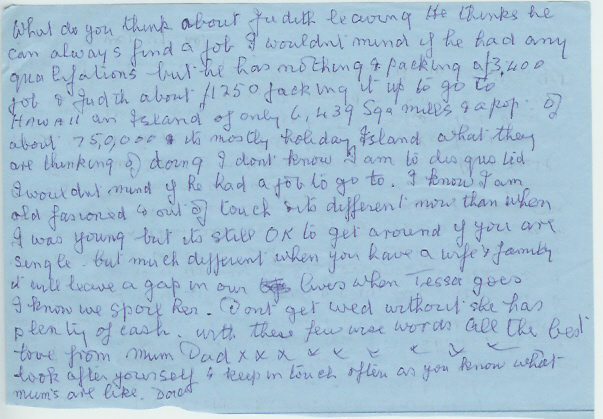 What do you think about Judith leaving He thinks he
can always find a job I wouldnt mind if he had any
qualifations but he has nothing & packing a £3,400
job & Judth about £1250 packing it up to go to
HAWAII an Island of only 6,439 Sqa miles & a pop. of
about 750,000 & its mostly holiday Island what they
are thinking of doing I dont know I am to disgusted
I wouldnt mind if he had a job to go to. I know I am
old fasioned & out of touch & its different now than when
I was young but its still OK to get around if you are
single. but much different when you have a wife & family
it will leave a gap in our lives when Tessa goes
I know we spoil her. Dont get wed without she has
plenty of cash. with these few wise words all the best
love from Mum Dad x x x x x x x x x
look after yourself & keep in touch often as you know what
mum's are like. Dad